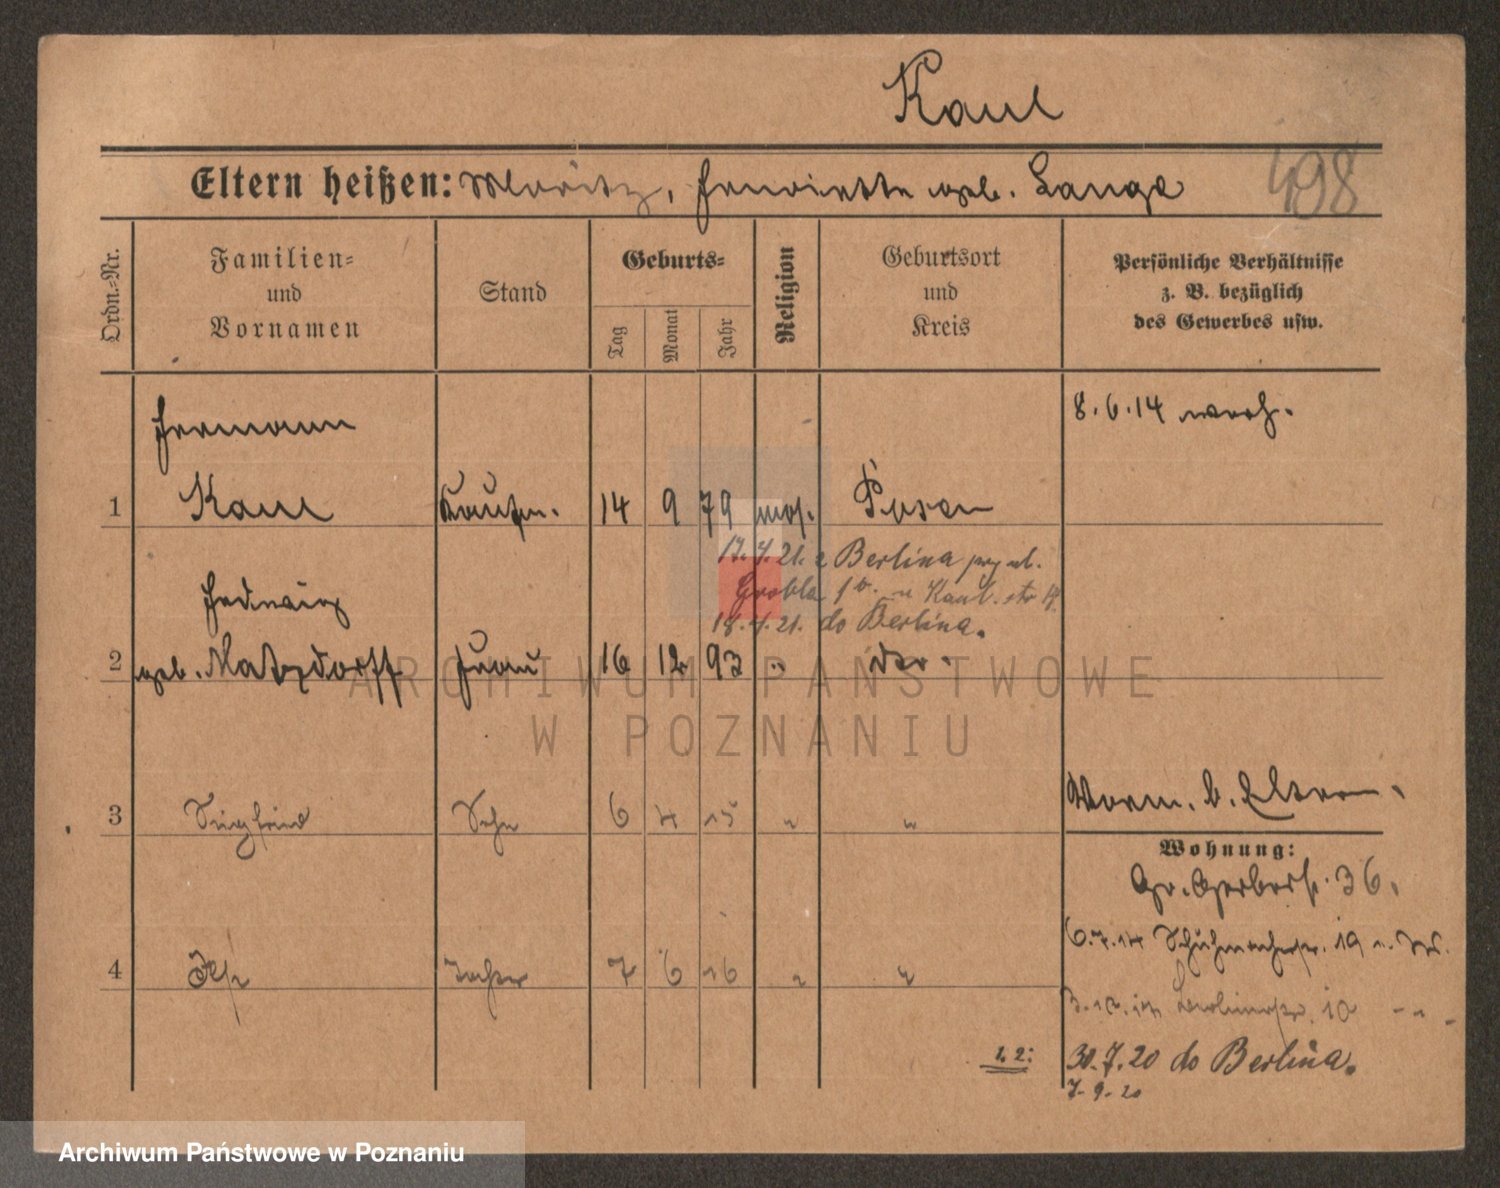 Kaul
498
Eltern heißen: Moritz, Henriette geb. Lange
Ordn.-Nr.
Familien-
und
Vornamen
Stand
Geburts-
Tag
Monat
Jahr
Religion
Geburtsort
und
Kreis
Persönliche Verhältnisse
z. B. bezüglich
des Gewerbes usw.
Hermann
8.6.14
1 Kaul Kaufm. 14 9 79 mos. Posen
17.4.21. z Berlina
Grobla u Kaul.
Hedwig
18.4.21. do Berlina.
2 geb. Matzdorff Frau 16 12 93 "
3 Siegfried Sohn 6 4 15 " "
Worm. b. Eltern.
Wohnung:
Gr. Gerberstr. 36.
6.7.14 Schuhmacherstr. 19
4 Ilse Tochter 7 6 16 " "
Berlinerstr. 10
1, 2: 30.7.20 do Berlina.
7.9.20
ARCHIWUM PAŃSTWOWE
W POZNANIU
Archiwum Państwowe w Poznaniu